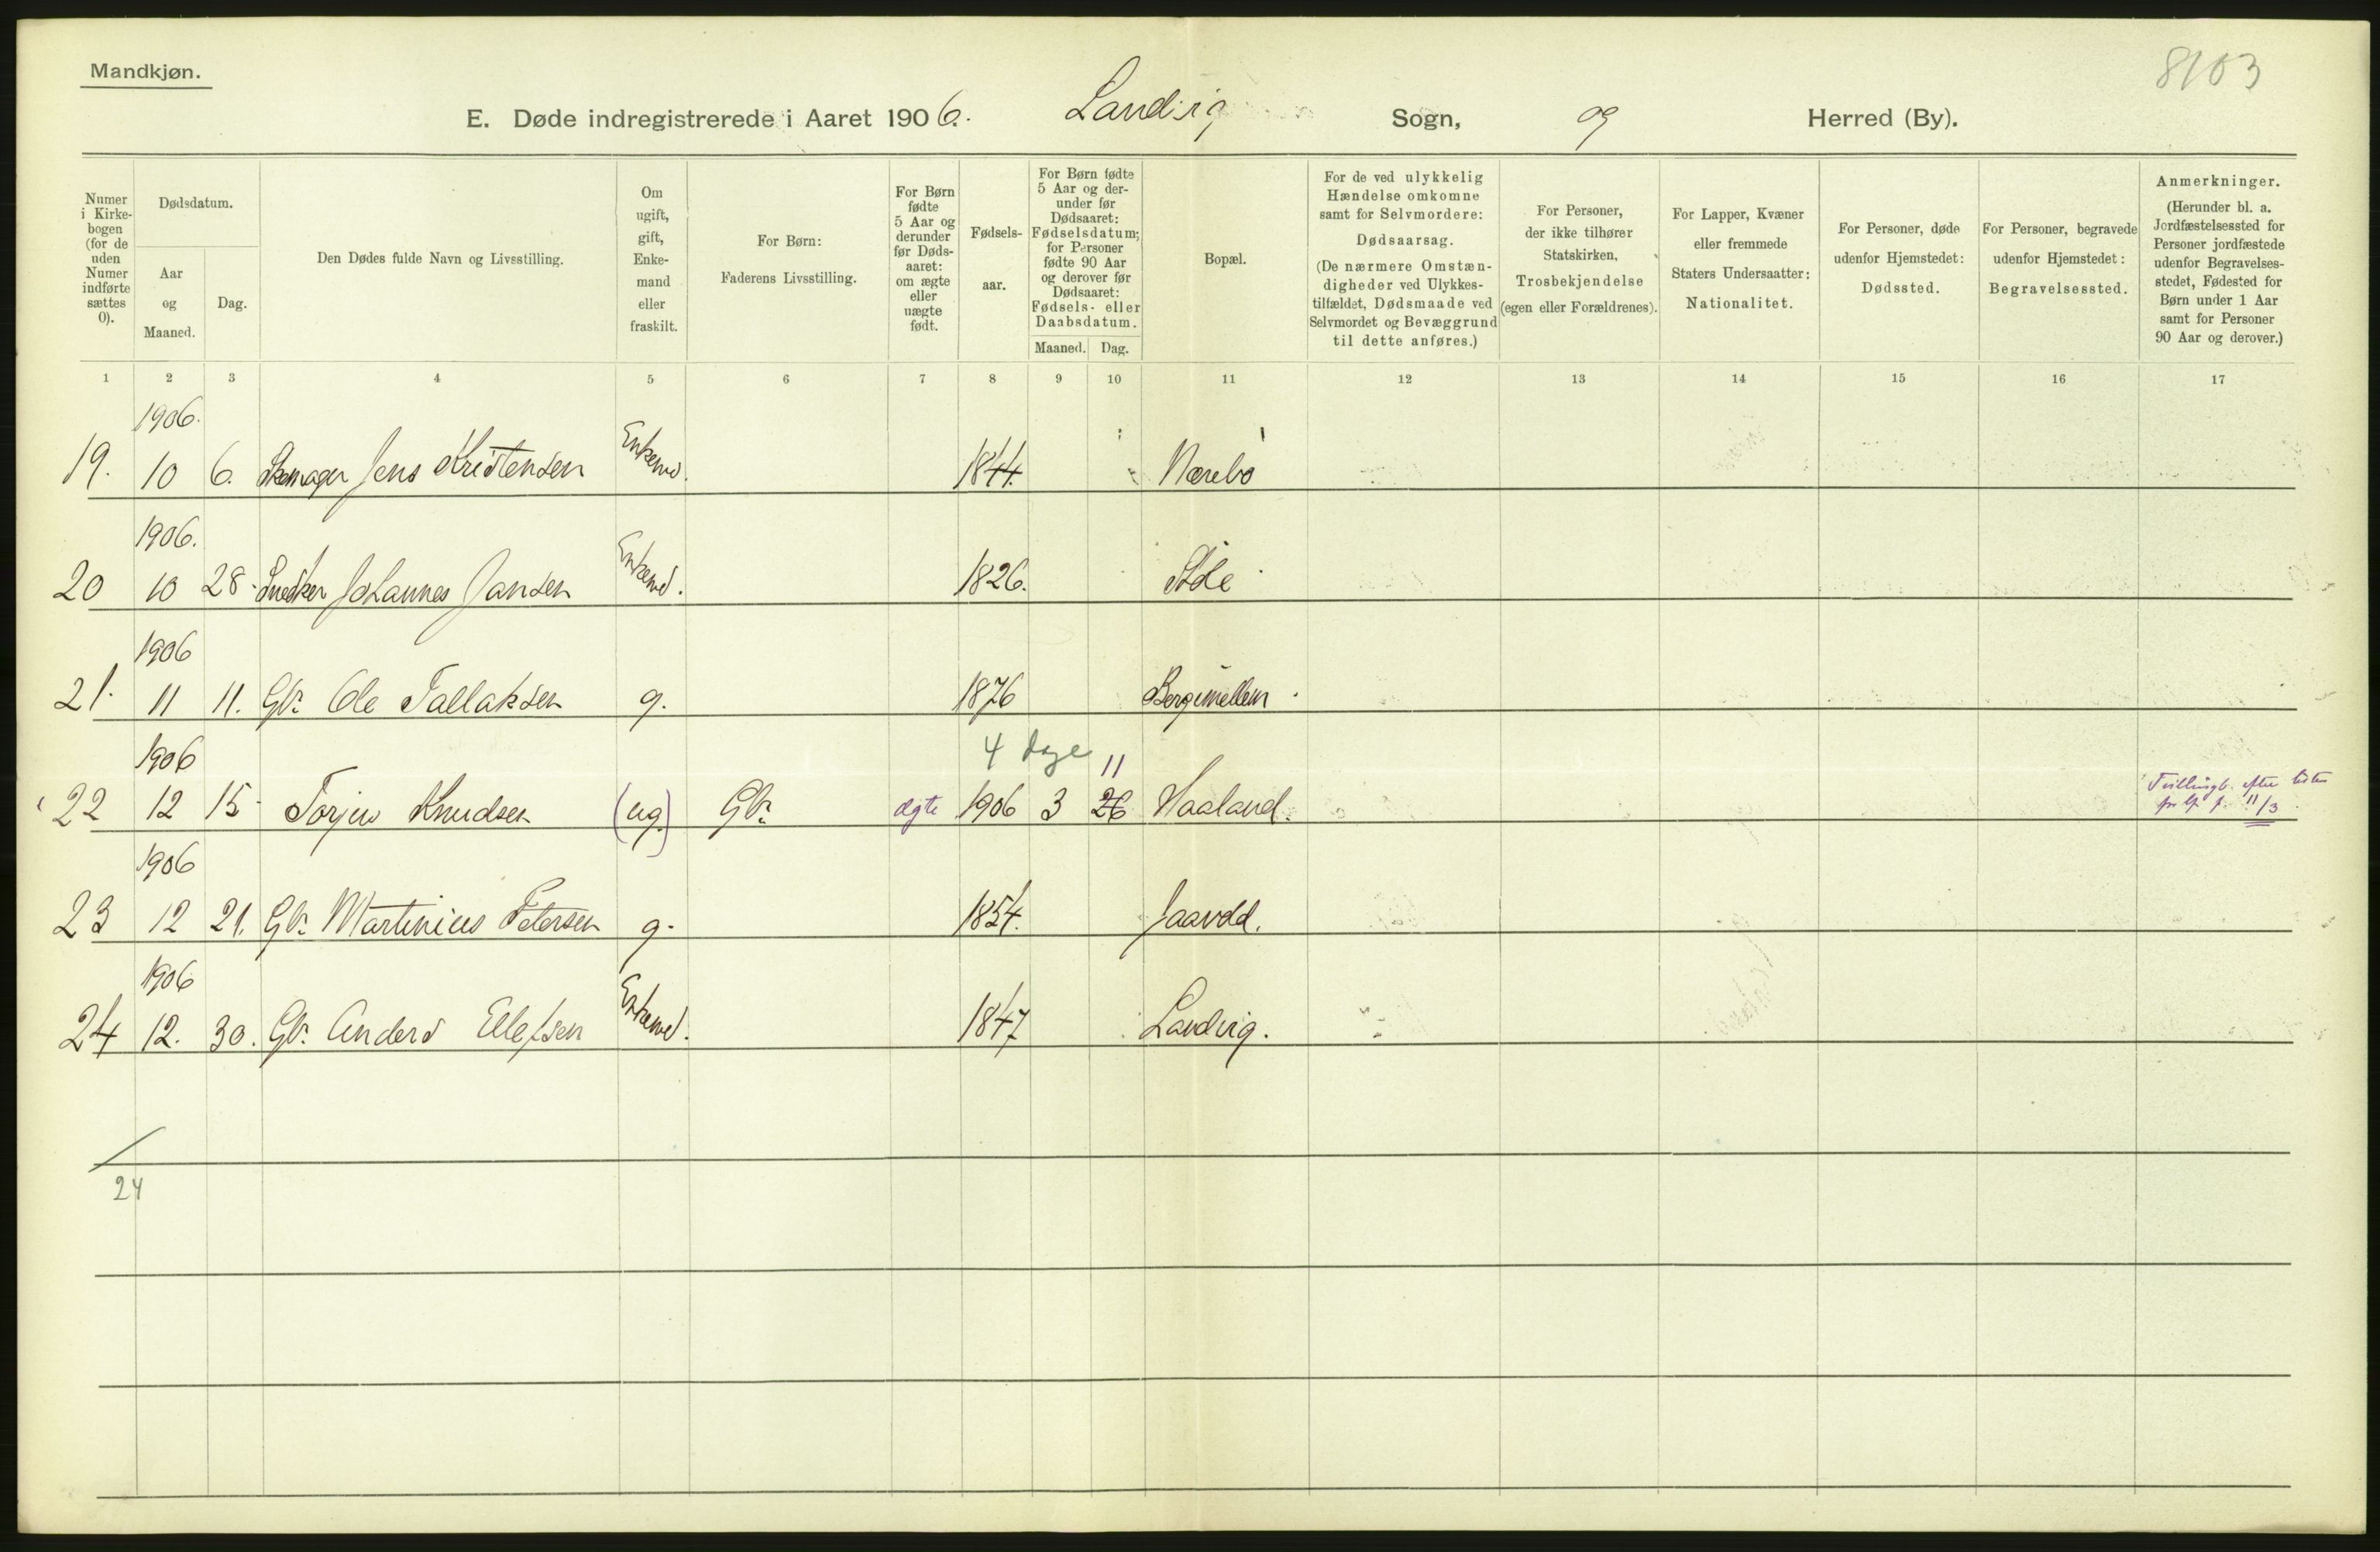 Mandkjøn.
8103
E. Døde indregistrerede i Aaret 1906. Landvig Sogn, og Herred (By).
Numer i Kirkebogen (for de uden Numer indførte sættes 0).
Dødsdatum.
Aar og Maaned.
Dag.
Den Dødes fulde Navn og Livsstilling.
Om ugift, gift, Enkemand eller fraskilt.
For Børn: Faderens Livsstilling.
For Børn fødte 5 Aar og derunder før Dødsaaret: om ægte eller uægte født.
Fødselsaar.
For Børn fødte 5 Aar og derunder før Dødsaaret: Fødselsdatum; for Personer fødte 90 Aar og derover før Dødsaaret: Fødsels- eller Daabsdatum.
Maaned. Dag.
Bopæl.
For de ved ulykkelig Hændelse omkomne samt for Selvmordere: Dødsaarsag. (De nærmere Omstændigheder ved Ulykkestilfældet, Dødsmaade ved Selvmordet og Bevæggrund til dette anføres.)
For Personer, der ikke tilhører Statskirken, Trosbekjendelse (egen eller Forældrenes).
For Lapper, Kvæner eller fremmede Staters Undersaatter: Nationalitet.
For Personer, døde udenfor Hjemstedet: Dødssted.
For Personer, begravede udenfor Hjemstedet: Begravelsessted.
Anmerkninger. (Herunder bl. a. Jordfæstelsessted for Personer jordfæstede udenfor Begravelsesstedet, Fødested for Børn under 1 Aar samt for Personer 90 Aar og derover.)
1 2 3 4 5 6 7 8 9 10 11 12 13 14 15 16 17
1906.
19. 10 6. Skomager Jens Kristensen Enkemd. 1844. Nærebo
1906.
20 10 28. Snedker Johannes Jansen Enkemd. 1826. Støle
1906
21. 11 11. Gbr. Ole Tallaksen g. 1876 Bergemellem
1906 4 dage 11
22 12 15 Torjus Knudsen (ug.) Gbr. ægte 1906 3 26 Haaland. Tvillingb. efter listen
11/3
1906
23 12 21. Gbr. Martinius Petersen g. 1854. Jaavold.
1906
24 12. 30. Gbr. Anders Ellefsen Enkemd. 1847 Landvig.
24